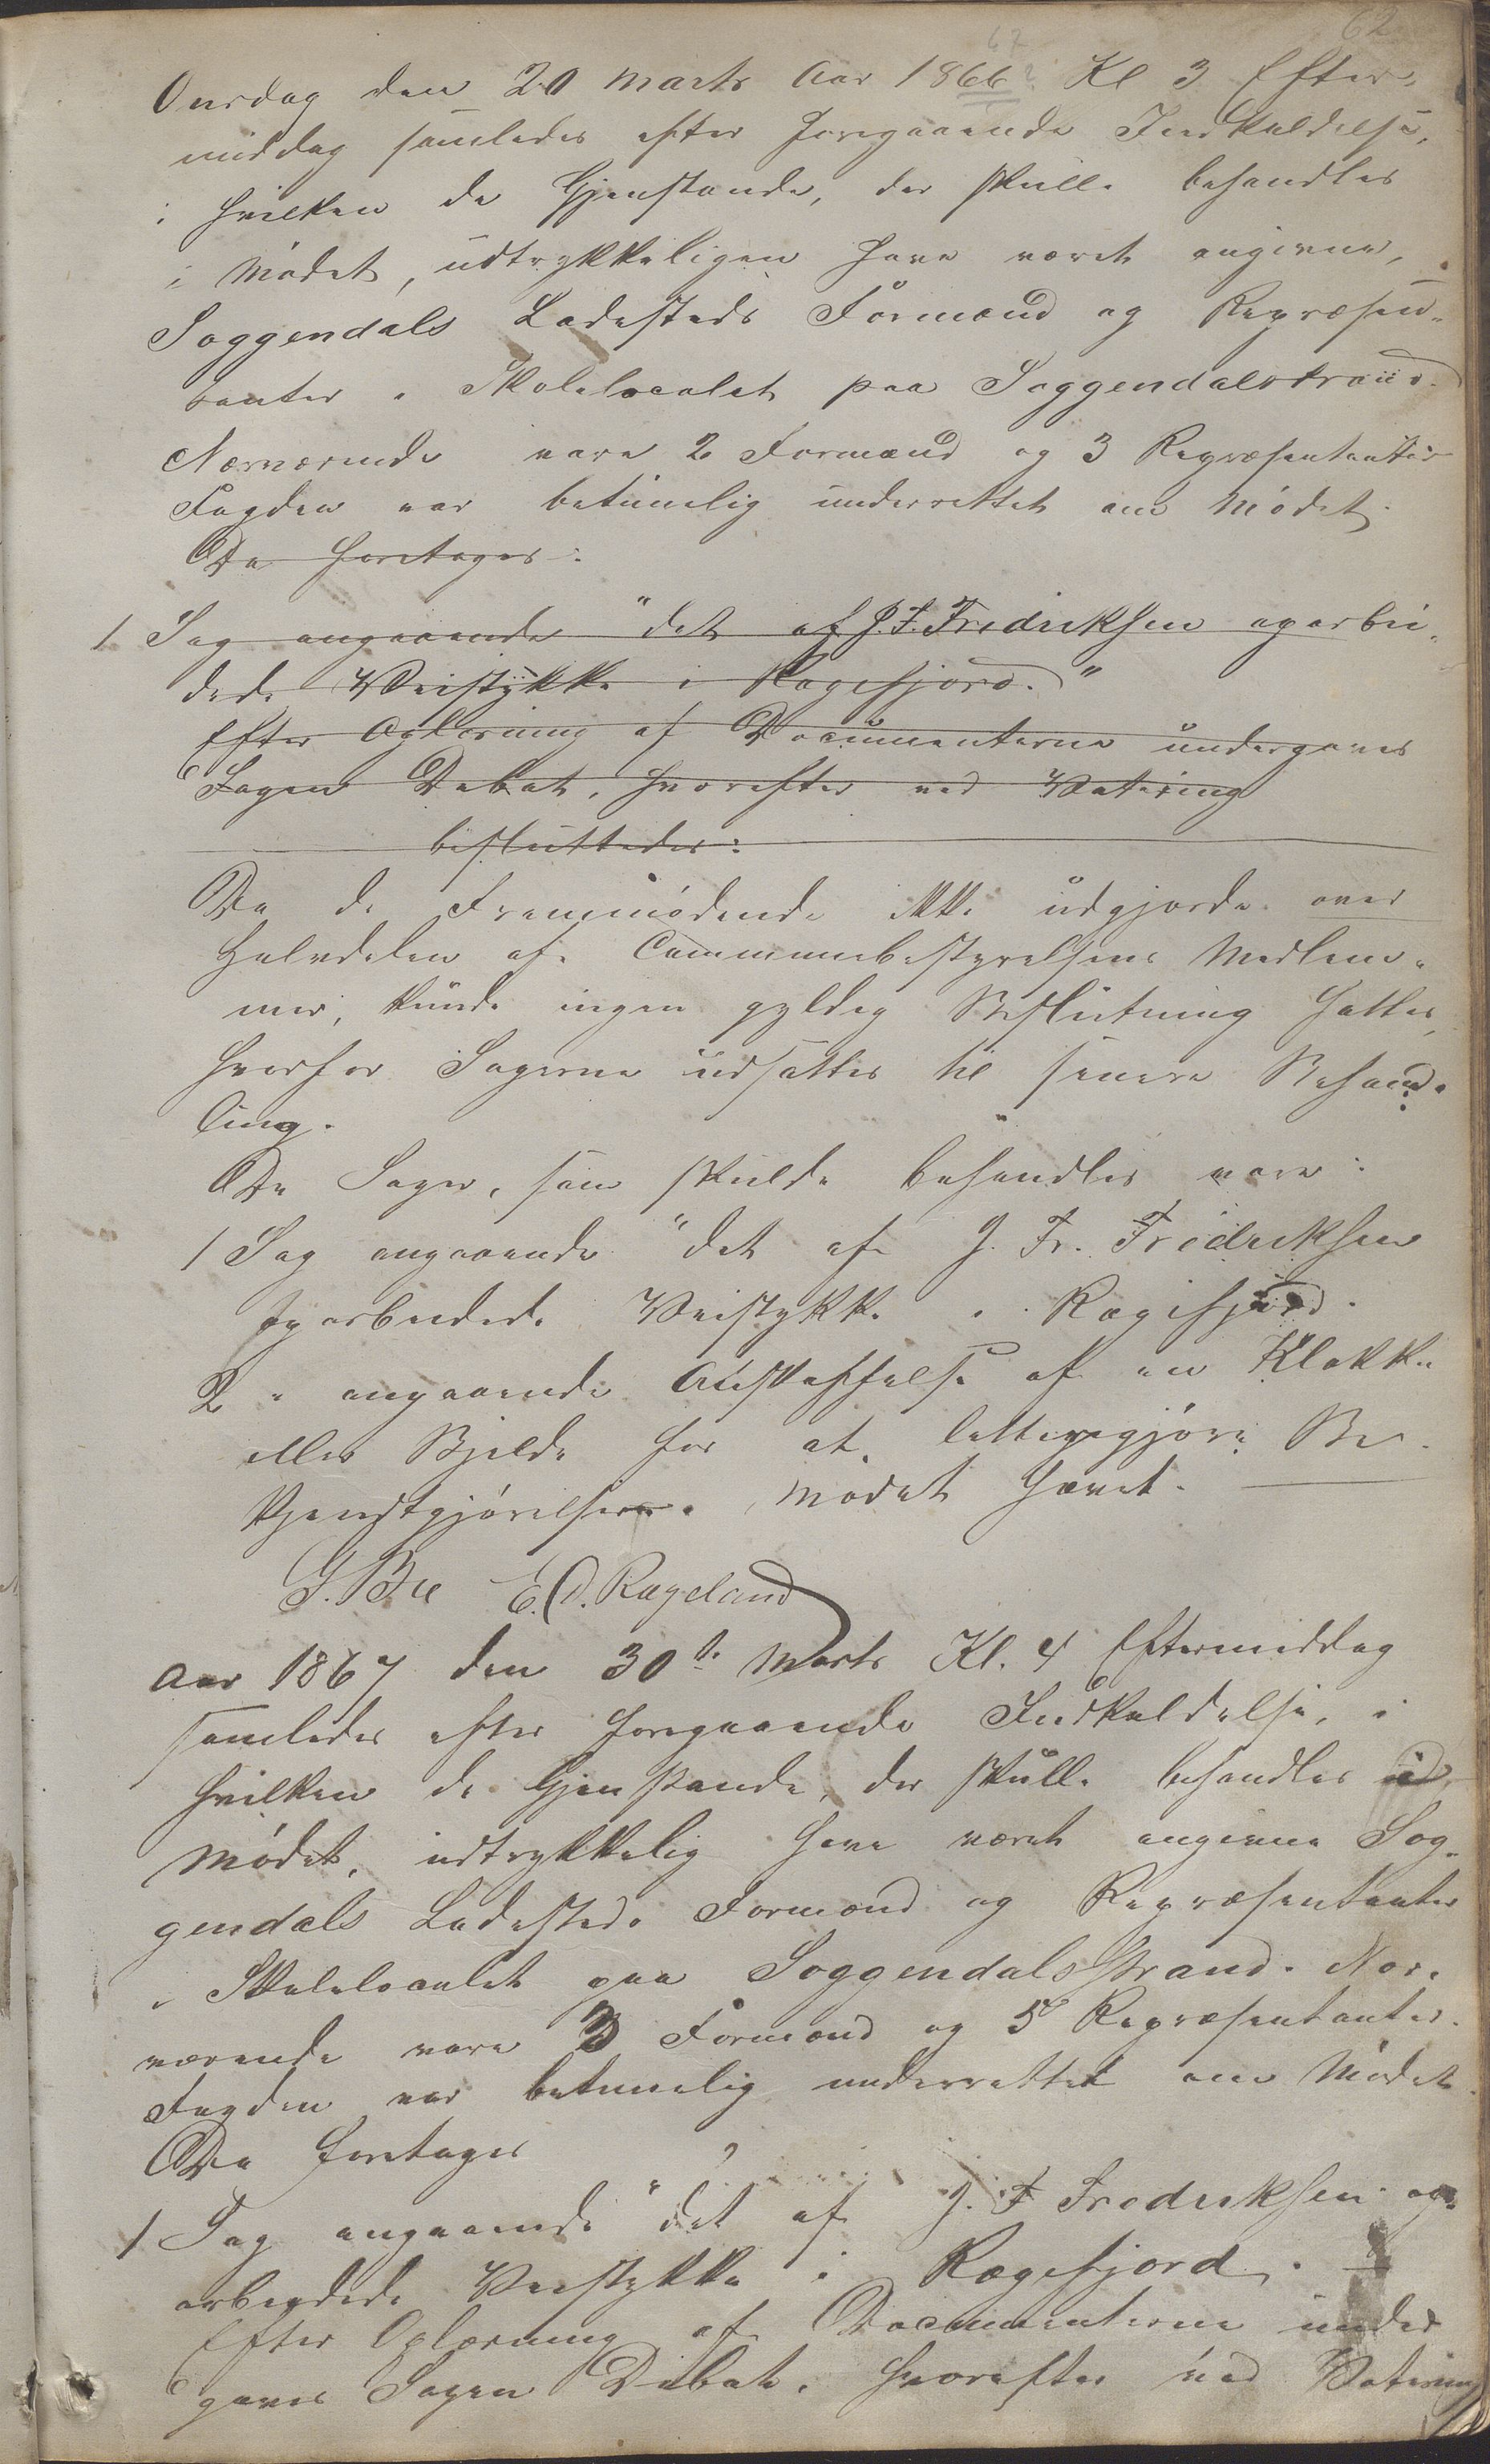 62
67
Onsdag den 20 Marts Aar 1866? Kl 3 Efter-
middag samledes efter foregaaende Indkaldelse,
i hvilken de Gjenstande, der skulle behandles
i Mødet, udtrykkeligen have været angivne,
Soggendals Ladesteds Formænd og Repræsen-
tanter i Skolelocalet paa Soggendalstrand.
Nærværende vare 2 Formænd og 3 Repræsentanter
Fogden var betimelig underrettet om Mødet.
Da foretoges:
1 Sag angaaende "det af J. F. Fredriksen oparbei-
dede Veistykke i Rægefjord."
Efter Oplæsning af Documenterne undergaves
Sagen Debat, hvorefter ved Votering
besluttedes:
Da de Fremmødende ikke udgjorde over
Halvdelen af Communebestyrelsens Medlem-
mer, kunde ingen gyldig Beslutning fattes,
hvorfor Sagerne udsattes til senere Behand-
ling.
De Sager, som skulde behandles vare:
1 Sag angaaende "det af J. Fr. Fredriksen
oparbeidede Veistykke i Rægefjord.
2 " angaaende Anskaffelse af en Klokke
eller Bjelde for at lettergjøre Be-
kjendtgjørelser. Mødet hævet.
G. Bu E. O. Rægeland
Aar 1867 den 30te Marts Kl. 4 Eftermiddag
samledes efter foregaaende Indkaldelse, i
hvilken de Gjenstande, der skulle behandles i
Mødet, udtrykkelig have været angivne Sog-
gendals Ladesteds Formænd og Repræsentanter
i Skolelocalet paa Soggendalsstrand. Nær-
værende vare 3 Formænd og 5 Repræsentanter.
Fogden var betimelig underrettet om Mødet.
Da foretoges
1 Sag angaaende "det af J. F Fredriksen op-
arbeydede Veistykke i Rægefjord.
Efter Oplæsning af Documenterne under
gaves Sagen Debat, hvorefter ved Votering